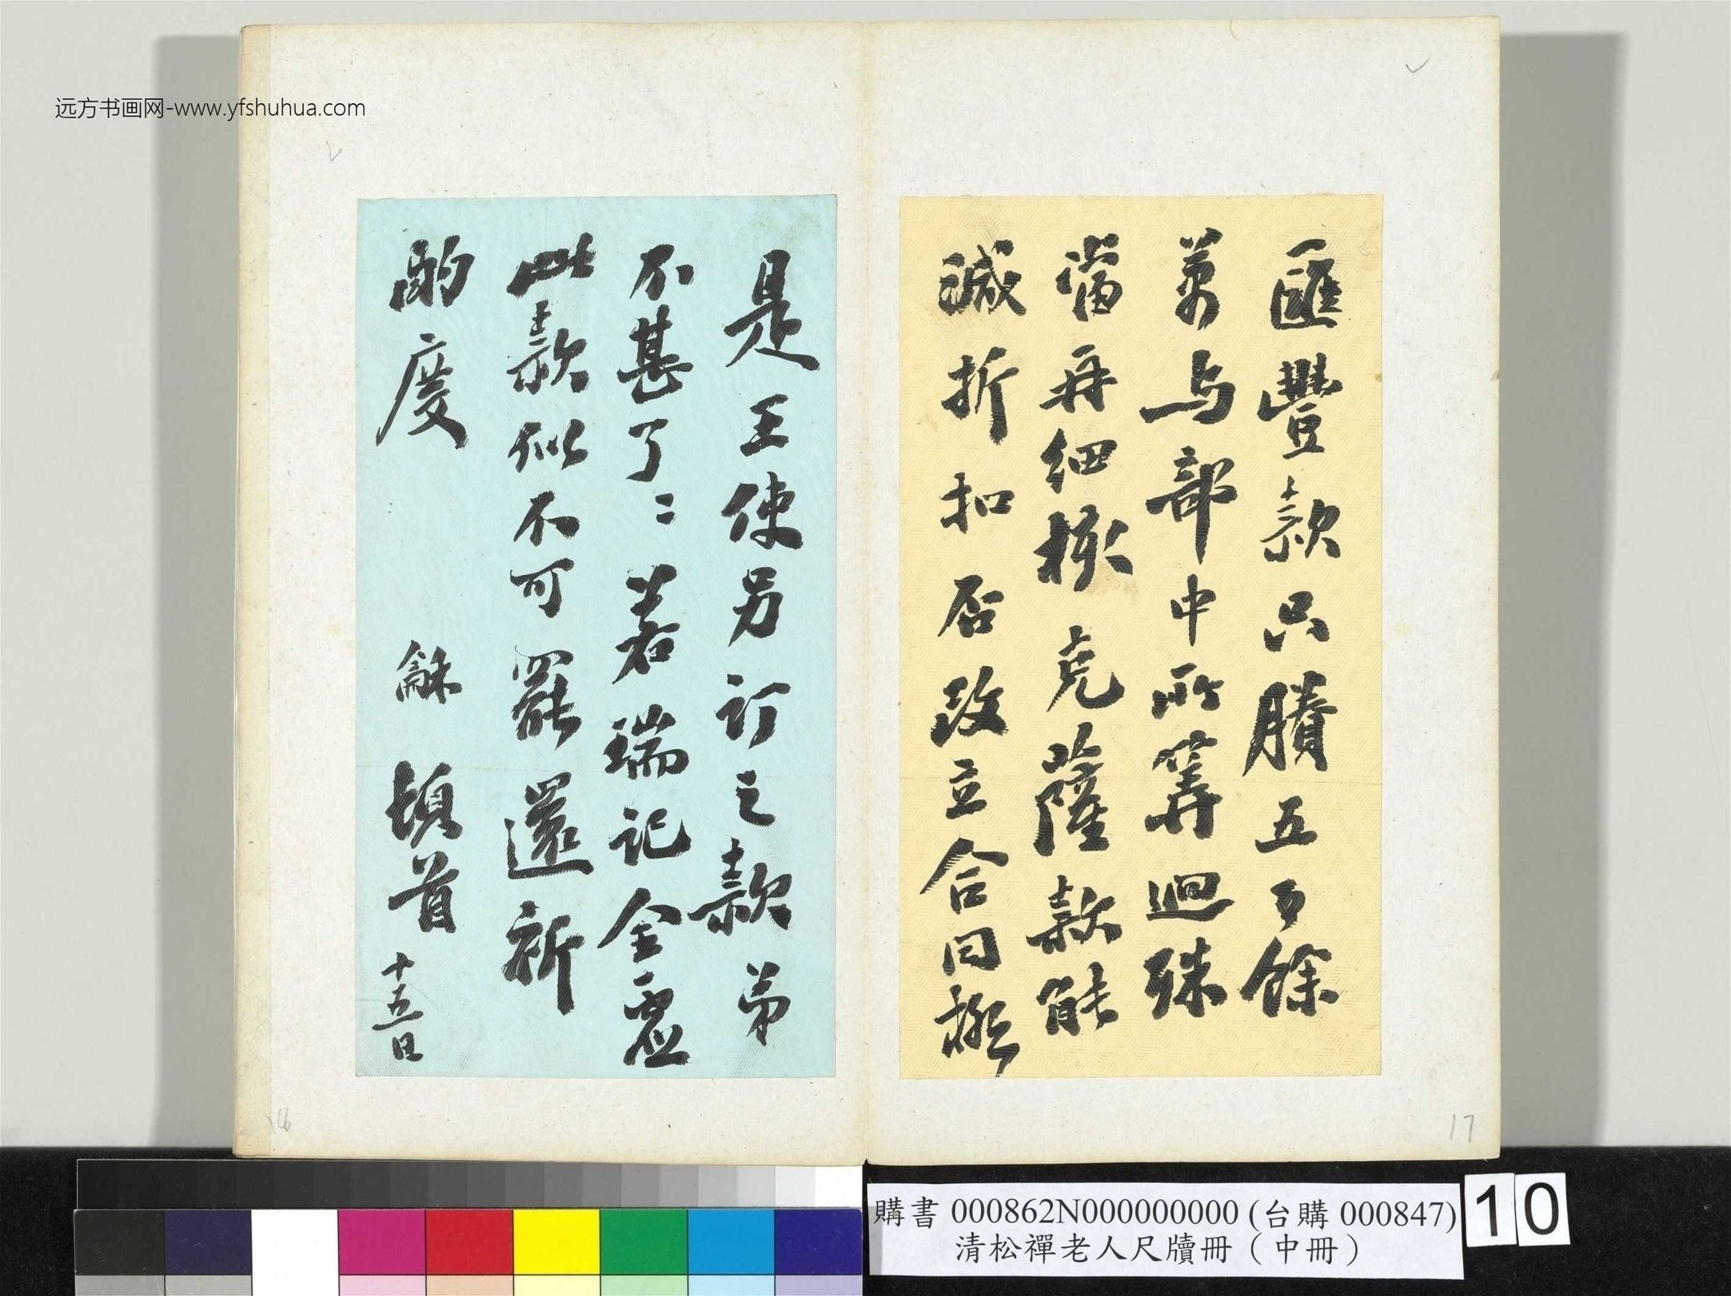 远方书画网-www.yfshuhua.com
匯豐款只賸五ㄋ餘
萬与部中所筭迴殊
當再細核克薩款能
減折扣否改立合同擬
是王使另訂之款弟
不甚了〻若瑞記全虛
此款似不可罷還祈
酌度
龢 頓首 十五日
16
17
購書 000862N000000000 (台購 000847)
清松禪老人尺牘冊（中冊）
10